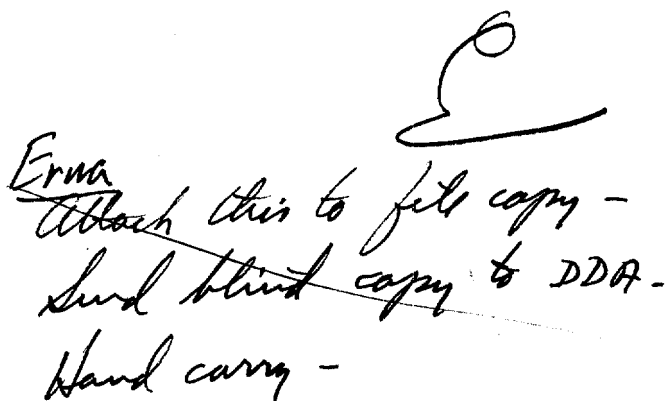 E
Erna
Attach this to file copy -
Send blind copy to DDA -
Hand carry -